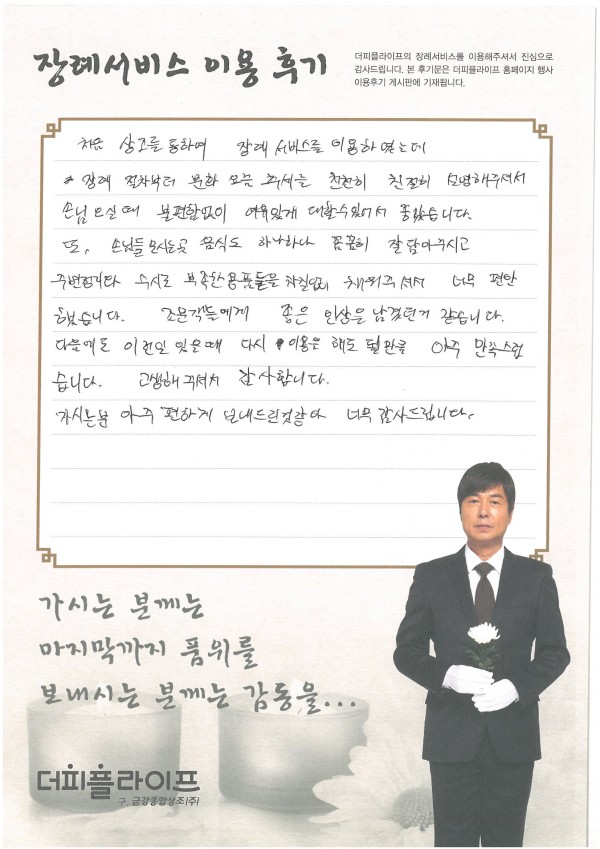 장례서비스 이용 후기
더피플라이프의 장례서비스를 이용해주셔서 진심으로
감사드립니다. 본 후기문은 더피플라이프 홈페이지 행사
이용후기 게시판에 기재됩니다.
처음 상조를 통하여 장례 서비스를 이용하였는데
장례 절차부터 천천히 친절히 설명해주셔서
손님 오실때 불편함없이 여유있게 대할수있어서 좋았습니다.
또, 손님들 모시는곳 음식도 하나하나 꼼꼼히 잘 담아주시고
수시로 부족한용품들을 채워주셔서 너무 편탄
했습니다. 조문객들에게 좋은 인상을 남겼던거 같습니다.
다음에도 이런일 있을때 다시 이용은 해도 될만큼 아주 만족스럽
습니다. 고생해 주셔서 감사합니다.
가시는분 아주 편하게 보내드린것같아 너무 감사드립니다.
가시는 분께는
마지막까지 품위를
보내시는 분께는 감동을...
더피플라이프
구. 금강종합상조(주)